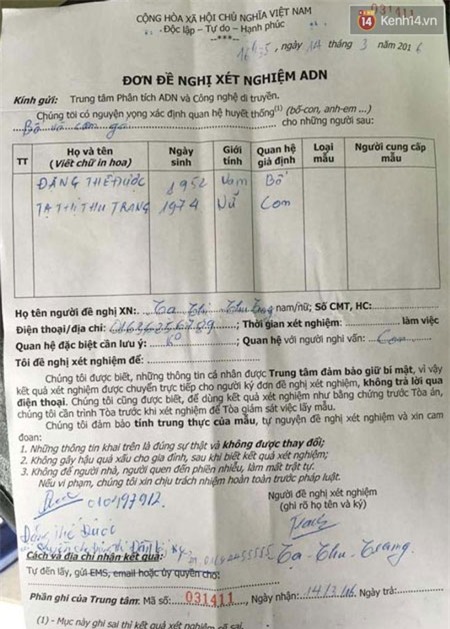 031411
14 Kenh14.vn
CỘNG HÒA XÃ HỘI CHỦ NGHĨA VIỆT NAM
Độc lập – Tự do – Hạnh phúc
---***---
ngày 14 tháng 3 năm 2016
ĐƠN ĐỀ NGHỊ XÉT NGHIỆM ADN
Kính gửi: Trung tâm Phân tích ADN và Công nghệ di truyền.
Chúng tôi có nguyện vọng xác định quan hệ huyết thống(1) (bố-con, anh-em ...)
Bố và con gái cho những người sau:
TT Họ và tên (Viết chữ in hoa) Ngày sinh Giới tính Quan hệ giả định Loại mẫu Người cung cấp mẫu
ĐẶNG THẾ ĐƯỚC 1952 Nam Bố
TẠ THỊ THU TRANG 1974 Nữ Con
Họ tên người đề nghị XN: Tạ Thị Thu Trang nam/nữ; Số CMT, HC:
Điện thoại/địa chỉ: ; Thời gian xét nghiệm: làm việc
Quan hệ đặc biệt cần lưu ý: ; Quan hệ với người nghi vấn: Con
Tôi đề nghị xét nghiệm để:
Chúng tôi được biết, những thông tin cá nhân được Trung tâm đảm bảo giữ bí mật, vì vậy
kết quả xét nghiệm được chuyển trực tiếp cho người ký đơn đề nghị xét nghiệm, không trả lời qua
điện thoại. Chúng tôi cũng được biết, để dùng kết quả xét nghiệm như bằng chứng trước Tòa án,
chúng tôi cần trình Tòa trước khi xét nghiệm để Tòa giám sát việc lấy mẫu.
Chúng tôi đảm bảo tính trung thực của mẫu, tự nguyện đề nghị xét nghiệm và xin cam
đoan:
1. Những thông tin khai trên là đúng sự thật và không được thay đổi;
2. Không gây hậu quả xấu cho gia đình, sau khi biết kết quả xét nghiệm;
3. Không để người nhà, người quen đến phiền nhiễu, làm mất trật tự.
Nếu vi phạm, chúng tôi xin chịu trách nhiệm hoàn toàn trước pháp luật.
Người đề nghị xét nghiệm
(ghi rõ họ tên và ký)
010497912
Đặng Thế Đước
Tạ Thu Trang
Cách và địa chỉ nhận kết quả:
Tự đến lấy, gửi EMS, email hoặc ủy quyền cho:
Phần ghi của Trung tâm: Mã số: 031411, Ngày nhận: 14/3/16 Ngày trả:
(1) - Mục này ghi sai thì kết quả xét nghiệm sẽ sai.